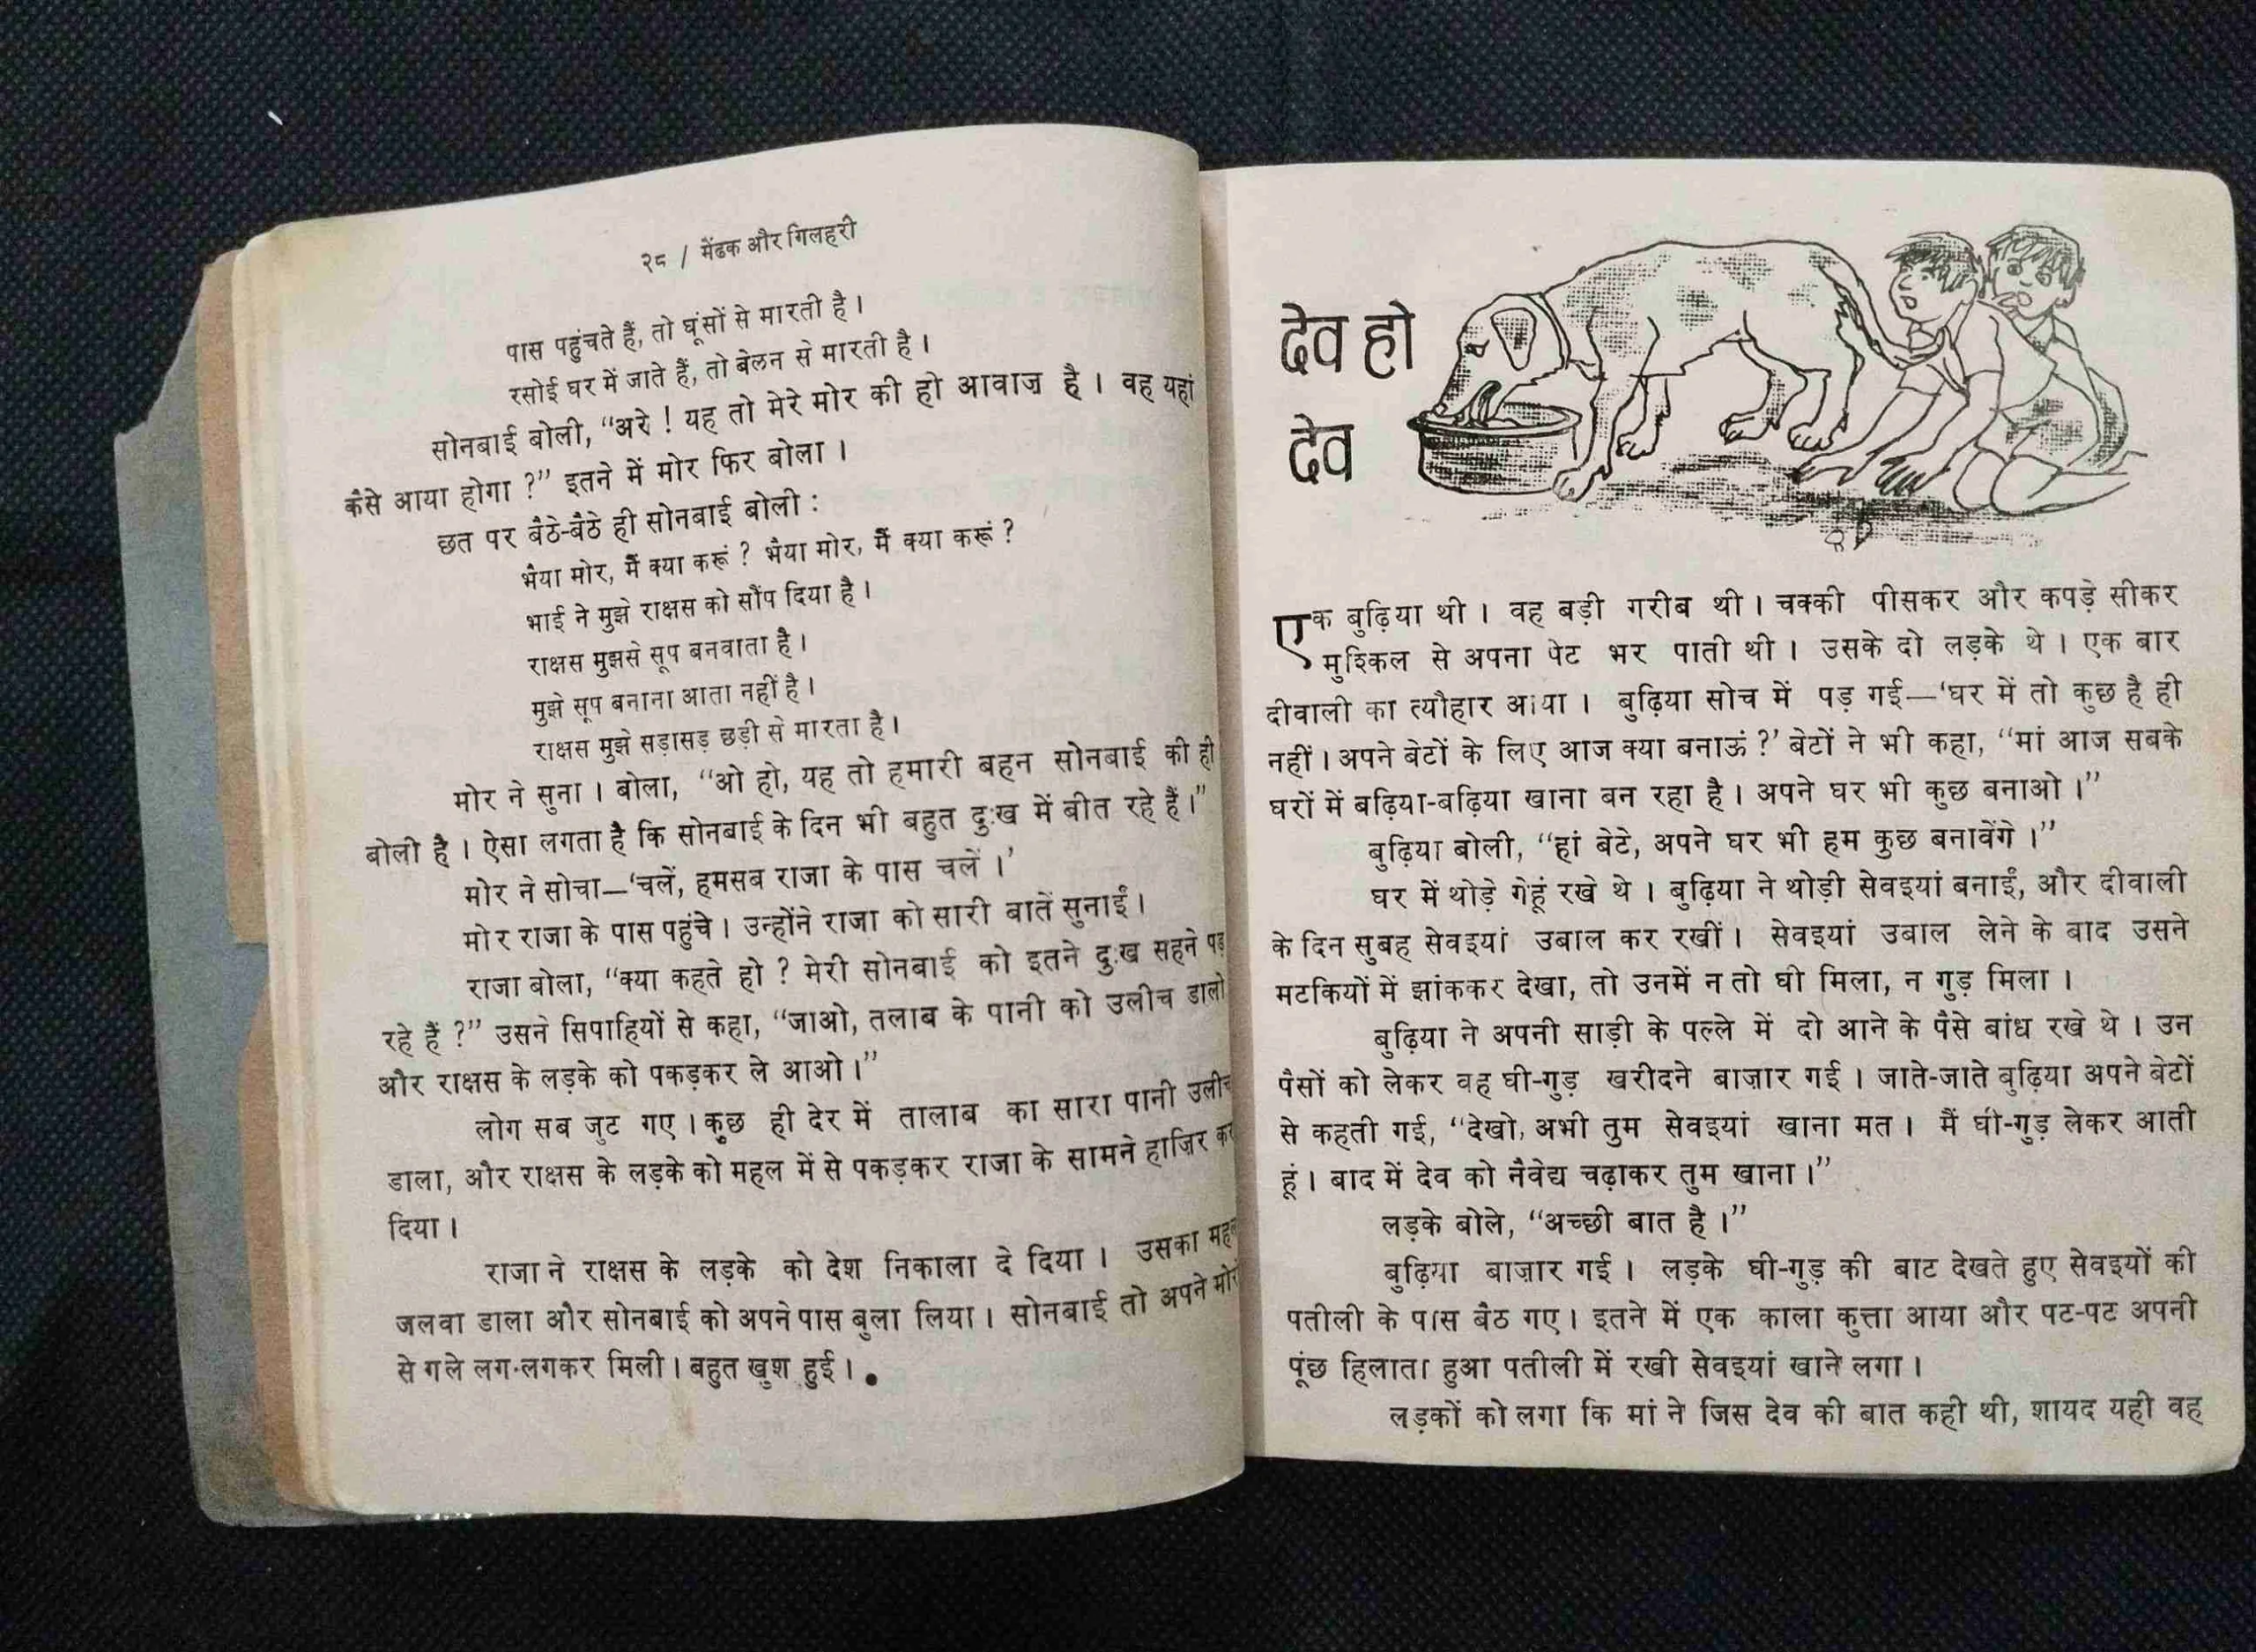 २८ / मेंढक और गिलहरी
पास पहुंचते हैं, तो घूंसों से मारती है ।
रसोई घर में जाते हैं, तो बेलन से मारती है ।
सोनबाई बोली, “अरे ! यह तो मेरे मोर की हो आवाज़ है । वह यहां
कैसे आया होगा ?” इतने में मोर फिर बोला ।
छत पर बैठे-बैठे ही सोनबाई बोली :
भैया मोर, मैं क्या करूं ? भैया मोर, मैं क्या करूं ?
भाई ने मुझे राक्षस को सौंप दिया है ।
राक्षस मुझसे सूप बनवाता है ।
मुझे सूप बनाना आता नहीं है ।
राक्षस मुझे सड़ासड़ छड़ी से मारता है ।
मोर ने सुना । बोला, “ओ हो, यह तो हमारी बहन सोनबाई की ही
बोली है । ऐसा लगता है कि सोनबाई के दिन भी बहुत दुःख में बीत रहे हैं ।”
मोर ने सोचा—‘चलें, हमसब राजा के पास चलें ।’
मोर राजा के पास पहुंचे । उन्होंने राजा को सारी बातें सुनाईं ।
राजा बोला, “क्या कहते हो ? मेरी सोनबाई को इतने दुःख सहने पड़
रहे हैं ?” उसने सिपाहियों से कहा, “जाओ, तलाब के पानी को उलीच डालो
और राक्षस के लड़के को पकड़कर ले आओ ।”
लोग सब जुट गए । कुछ ही देर में तालाब का सारा पानी उलीच
डाला, और राक्षस के लड़के को महल में से पकड़कर राजा के सामने हाज़िर कर
दिया ।
राजा ने राक्षस के लड़के को देश निकाला दे दिया । उसका महल
जलवा डाला और सोनबाई को अपने पास बुला लिया । सोनबाई तो अपने मोरों
से गले लग-लगकर मिली । बहुत खुश हुई । ●
देव हो
देव
एक बुढ़िया थी । वह बड़ी गरीब थी । चक्की पीसकर और कपड़े सीकर
मुश्किल से अपना पेट भर पाती थी । उसके दो लड़के थे । एक बार
दीवाली का त्यौहार आया । बुढ़िया सोच में पड़ गई—‘घर में तो कुछ है ही
नहीं । अपने बेटों के लिए आज क्या बनाऊं ?’ बेटों ने भी कहा, “मां आज सबके
घरों में बढ़िया-बढ़िया खाना बन रहा है । अपने घर भी कुछ बनाओ ।”
बुढ़िया बोली, “हां बेटे, अपने घर भी हम कुछ बनावेंगे ।”
घर में थोड़े गेहूं रखे थे । बुढ़िया ने थोड़ी सेवइयां बनाईं, और दीवाली
के दिन सुबह सेवइयां उबाल कर रखीं । सेवइयां उबाल लेने के बाद उसने
मटकियों में झांककर देखा, तो उनमें न तो घी मिला, न गुड़ मिला ।
बुढ़िया ने अपनी साड़ी के पल्ले में दो आने के पैसे बांध रखे थे । उन
पैसों को लेकर वह घी-गुड़ खरीदने बाज़ार गई । जाते-जाते बुढ़िया अपने बेटों
से कहती गई, “देखो, अभी तुम सेवइयां खाना मत । मैं घी-गुड़ लेकर आती
हूं । बाद में देव को नैवेद्य चढ़ाकर तुम खाना ।”
लड़के बोले, “अच्छी बात है ।”
बुढ़िया बाज़ार गई । लड़के घी-गुड़ की बाट देखते हुए सेवइयों की
पतीली के पास बैठ गए । इतने में एक काला कुत्ता आया और पट-पट अपनी
पूंछ हिलाता हुआ पतीली में रखी सेवइयां खाने लगा ।
लड़कों को लगा कि मां ने जिस देव की बात कही थी, शायद यही वह